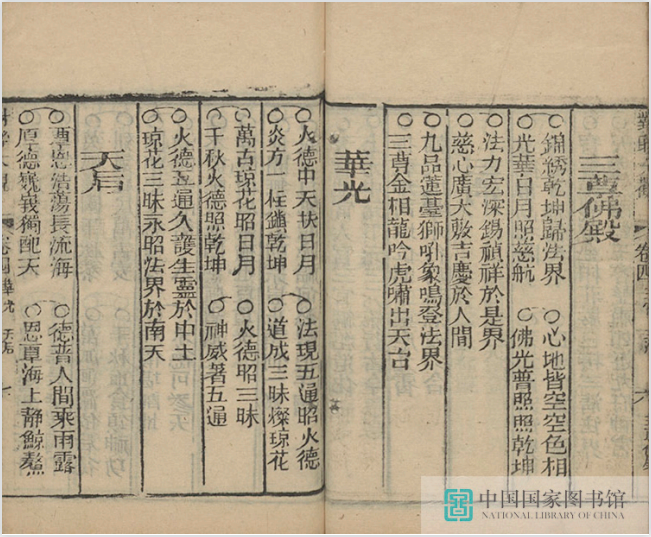 卷四
三尊佛殿
○錦綉乾坤歸法界 ○心地皆空空色相
○光華日月照慈航 佛光普照照乾坤
○法力宏深錫禎祥於是界
慈心廣大敷吉慶於人間
○九品蓮臺獅吼象鳴登法界
○三尊金相龍吟虎嘯出天台
華光
○火德中天扶日月 ○法現五通昭火德
炎方一柱鎮乾坤 ○道成三昧燦琼花
○萬古琼花昭日月 ○火德昭三昧
○千秋火德照乾坤 ○神威著五通
○火德五通久護生靈於中土
○琼花三昧永昭法界於南天
天后
○覃恩浩蕩長流海 ○德普人間乘雨露
○厚德巍峩獨配天 ○恩覃海上静鯨鰲
中国国家图书馆
NATIONAL LIBRARY OF CHINA